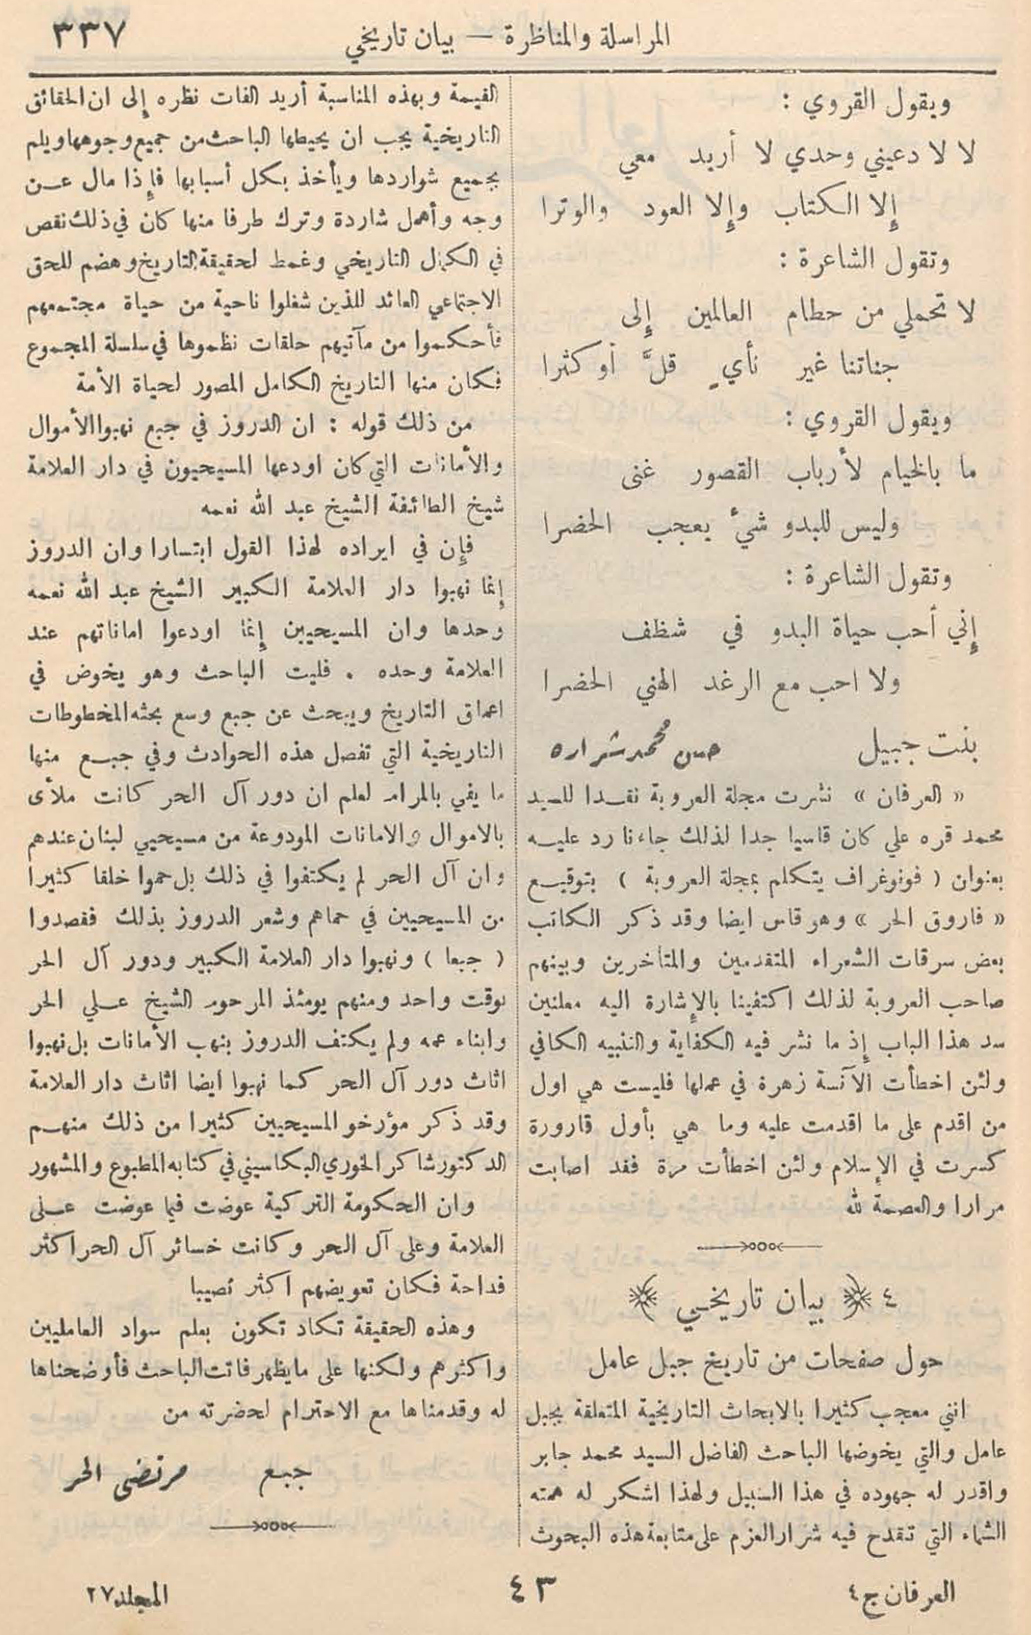 المراسلة والمناظرة — بيان تاريخي
٣٣٧
ويقول القروي :
لا لا دعيني وحدي لا أريد معي
إلا الكتاب وإلا العود والوترا
وتقول الشاعرة :
لا تحملي من حطام العالمين إلى
جناتنا غير نأيٍ قلَّ أو كثرا
ويقول القروي :
ما بالخيام لأرباب القصور غنى
وليس للبدو شيء يعجب الحضرا
وتقول الشاعرة :
إني أحب حياة البدو في شظف
ولا احب مع الرغد الهني الحضرا
بنت جبيل حسن محمد شراره
« العرفان » نشرت مجلة العروبة نقدا للسيد
محمد قره علي كان قاسيا جدا لذلك جاءنا رد عليه
بعنوان ( فونوغراف يتكلم بمجلة العروبة ) بتوقيع
« فاروق الحر » وهو قاس ايضا وقد ذكر الكاتب
بعض سرقات الشعراء المتقدمين والمتأخرين وبينهم
صاحب العروبة لذلك اكتفينا بالإشارة اليه معلنين
سد هذا الباب إذ ما نشر فيه الكفاية والتنبيه الكافي
ولئن اخطأت الآنسة زهرة في عملها فليست هي اول
من اقدم على ما اقدمت عليه وما هي بأول قارورة
كسرت في الإسلام ولئن اخطأت مرة فقد اصابت
مرارا والعصمة لله
٤ ﴿ بيان تاريخي ﴾
حول صفحات من تاريخ جبل عامل
انني معجب كثيرا بالابحاث التاريخية المتعلقة بجبل
عامل والتي يخوضها الباحث الفاضل السيد محمد جابر
واقدر له جهوده في هذا السبيل ولهذا اشكر له همته
الشماء التي تنقدح فيه شرار العزم على متابعة هذه البحوث
القيمة وبهذه المناسبة أريد الفات نظره إلى ان الحقائق
التاريخية يجب ان يحيطها الباحث من جميع وجوهها ويلم
بجميع شواردها ويأخذ بكل أسبابها فإذا مال عن
وجه وأهمل شاردة وترك طرفا منها كان في ذلك نقص
في الكمال التاريخي وغمط لحقيقة التاريخ وهضم للحق
الاجتماعي العائد للذين شغلوا ناحية من حياة مجتمعهم
فأحكموا من مآتيهم حلقات نظموها في سلسلة المجموع
فكان منها التاريخ الكامل المصور لحياة الأمة
من ذلك قوله : ان الدروز في جبع نهبوا الأموال
والأمانات التي كان اودعها المسيحيون في دار العلامة
شيخ الطائفة الشيخ عبد الله نعمه
فإن في ايراده لهذا القول ابتسارا وان الدروز
إنما نهبوا دار العلامة الكبير الشيخ عبد الله نعمه
وحدها وان المسيحيين إنما اودعوا اماناتهم عند
العلامة وحده . فليت الباحث وهو يخوض في
اعماق التاريخ ويبحث عن جبع وسع بحثه المخطوطات
التاريخية التي تفصل هذه الحوادث وفي جبع منها
ما يفي بالمرام لعلم ان دور آل الحر كانت ملأى
بالاموال والامانات المودوعة من مسيحيي لبنان عندهم
وان آل الحر لم يكتفوا في ذلك بل حموا خلقا كثيرا
من المسيحيين في حماهم وشعر الدروز بذلك فقصدوا
( جبعا ) ونهبوا دار العلامة الكبير ودور آل الحر
بوقت واحد ومنهم يومئذ المرحوم الشيخ علي الحر
وابناء عمه ولم يكتف الدروز بنهب الأمانات بل نهبوا
اثاث دور آل الحر كما نهبوا ايضا اثاث دار العلامة
وقد ذكر مؤرخو المسيحيين كثيرا من ذلك منهم
الدكتور شاكر الخوري البكاسيني في كتابه المطبوع والمشهور
وان الحكومة التركية عوضت فيما عوضت على
العلامة وعلى آل الحر وكانت خسائر آل الحر اكثر
فداحة فكان تعويضهم اكثر نصيبا
وهذه الحقيقة تكاد تكون بعلم سواد العامليين
واكثرهم ولكنها على ما يظهر فاتت الباحث فأوضحناها
له وقدمناها مع الاحترام لحضرته من
جبع مرتضى الحر
العرفان ج ٤
٤٣
المجلد ٢٧